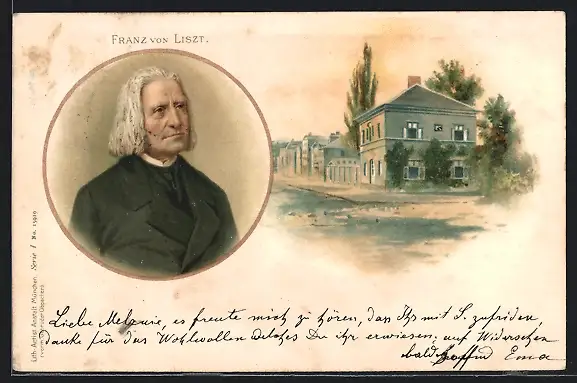 FRANZ VON LISZT.
Lith.-Artist. Anstalt München, Serie I No. 15919
Liebe Melanie, es freute mich zu hören, dass Ihr mit S. zufrieden,
danke für das Wohlwollen welches Du ihr erwiesen, auf Wiedersehen
bald Ema